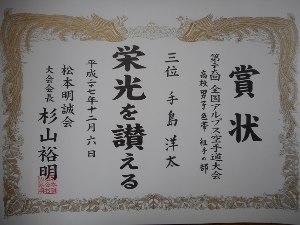 賞状
全国アルプス空手道大会
高校男子色帯 組手の部
三位 手島洋太
栄光を讃える
平成二十七年十二月六日
松本明誠会
大会会長 杉山裕明